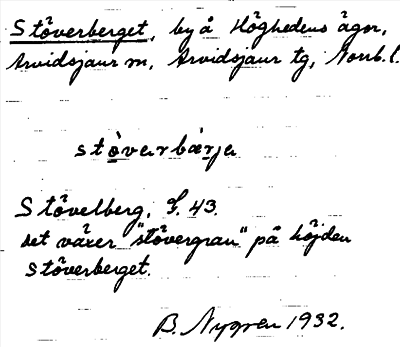 Stöverberget, by å Höghedens ägor,
Arvidsjaur sn, Arvidsjaur tg, Norrb. l.
stòverbærje
Stövelberg, G. 43.
det växer "stövergran" på höjden
Stöverberget.
B. Nygren 1932.